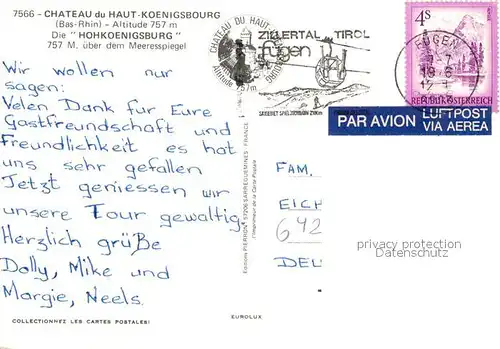 7566 - CHATEAU du HAUT-KOENIGSBOURG
(Bas-Rhin) - Altitude 757 m
Die "HOHKOENIGSBURG"
757 M. über dem Meeresspiegel
Wir wollen nur
sagen:
Velen Dank für Eure
Gastfreundschaft und
Freundlichkeit es hat
uns sehr gefallen
Jetzt geniessen wir
unsere Tour gewaltig
Herzlich grüße
Dolly, Mike und
Margie, Neels.
COLLECTIONNEZ LES CARTES POSTALES!
CHATEAU DU HAUT
Altitude 757m
ZILLERTAL - TIROL
fügen
4S
REPUBLIK ÖSTERREICH
PAR AVION
LUFTPOST
VIA AEREA
Editions PIERRON - 57206 SARREGUEMINES - FRANCE
l'Imprimeur de la Carte Postale
FAM.
EICH
642
DEL
privacy protection
Datenschutz
EUROLUX